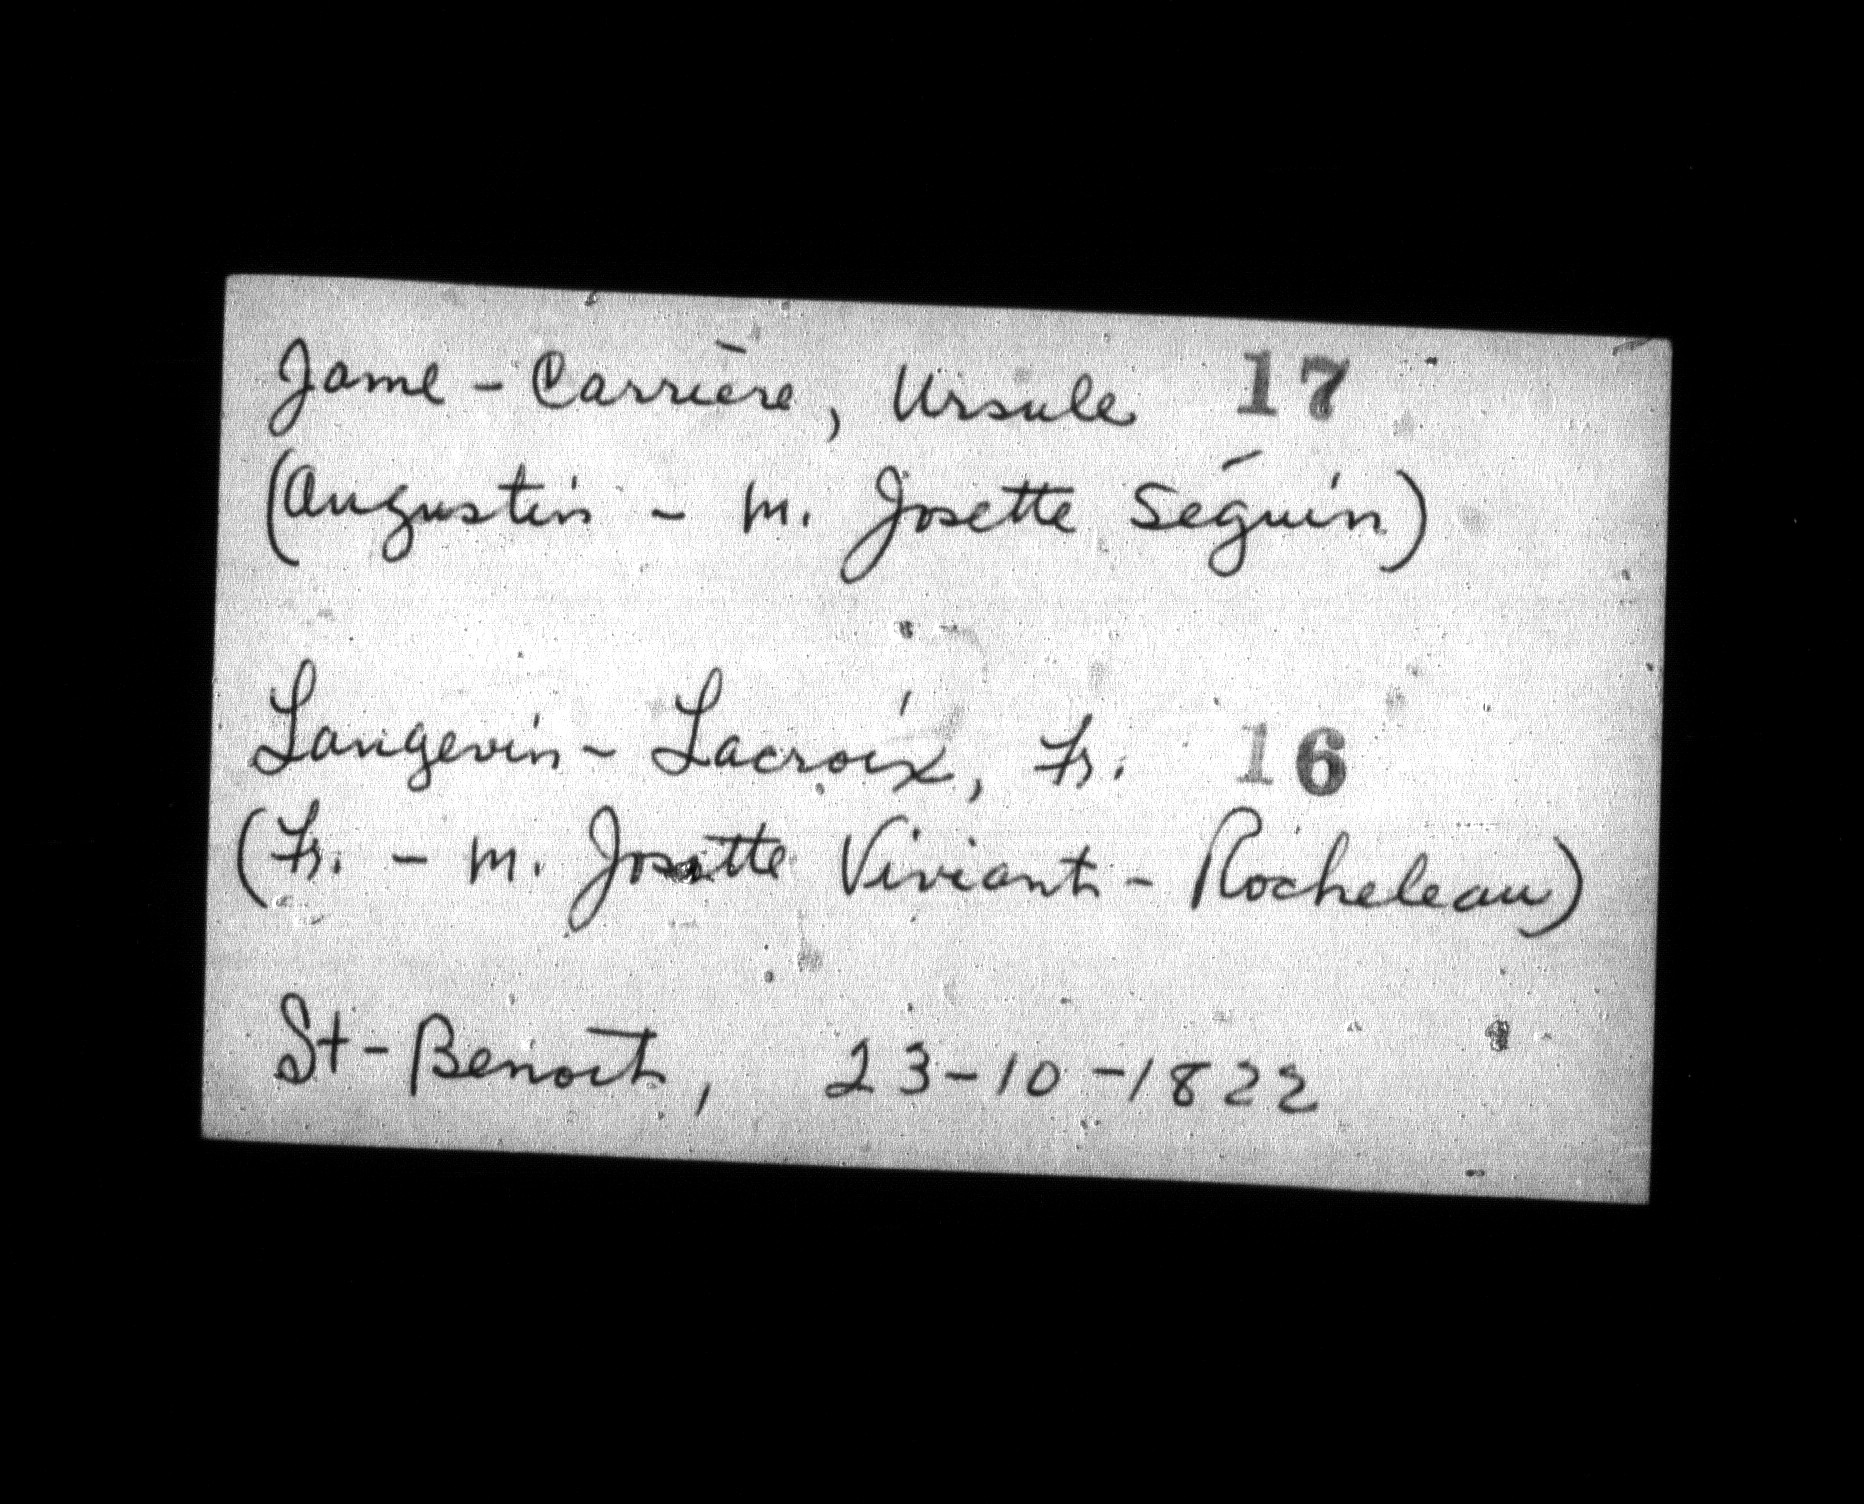 Jame - Carrière, Ursule 17
(Augustin - M. Josette Séguin)
Langevin - Lacroix, Fr. 16
(Fr. - M. Josette Viviant - Rocheleau)
St-Benoit, 23-10-1822